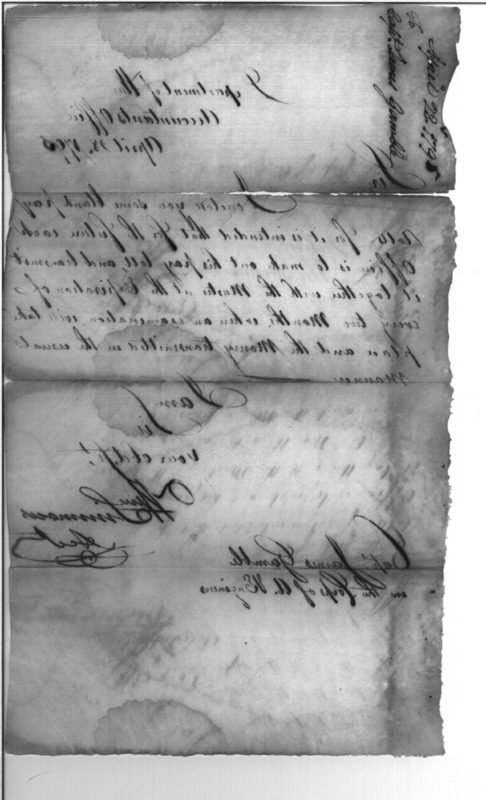 To April 23d 1795
Capt. James Gamble
Department of War
Accountants Office
April 23. 1795
Sir
I enclose you some blank pay
Rolls for it is intended that for the future each
Officer is to make out his pay roll, and transmit
it together with the Muster at the Expiration of
every two Months, when an examination will take
place and the Money transmitted in the usual
Manner
I am
Sir
your obdt. Sr.
Wm Simmons
Capt. James Gamble
in the Corps of A. & Engineers